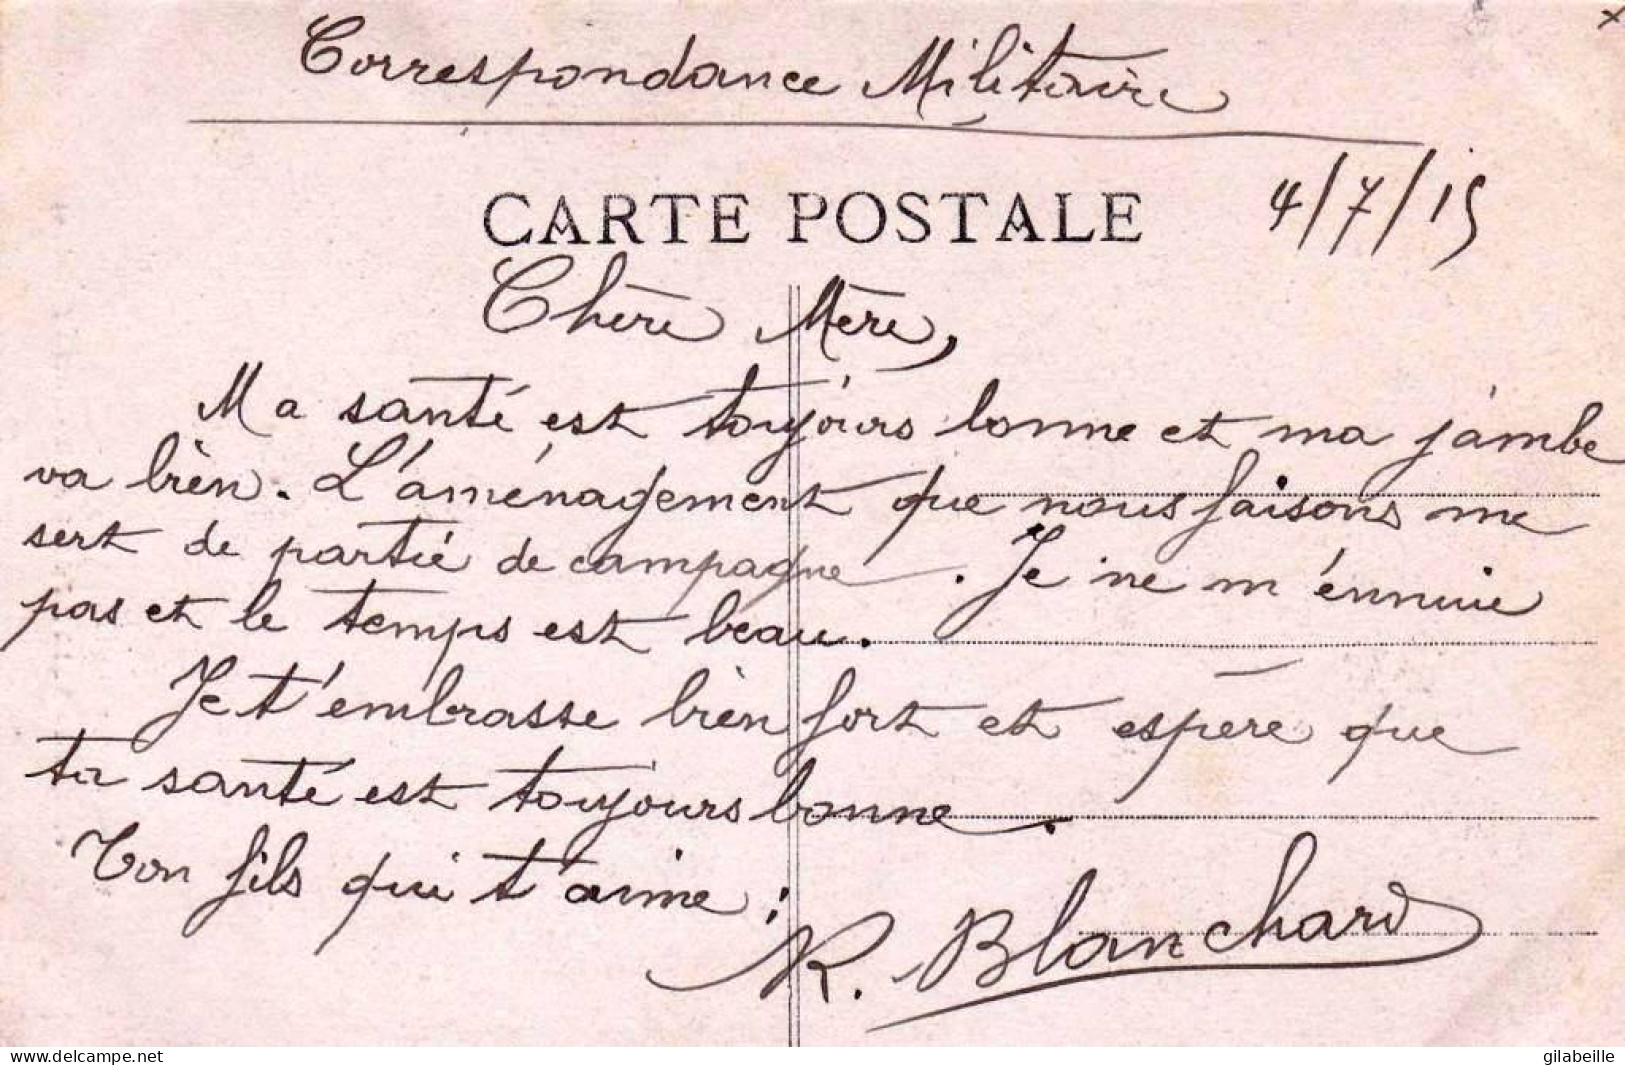 Correspondance Militaire
CARTE POSTALE
4/7/15
Chère Mère,
Ma santé est toujours bonne et ma jambe
va bien. L'aménagement que nous faisons me
sert de partie de campagne. Je ne m'ennuie
pas et le temps est beau.
Je t'embrasse bien fort et espère que
ta santé est toujours bonne.
Ton fils qui t'aime :
R. Blanchard
www.delcampe.net
gilabeille